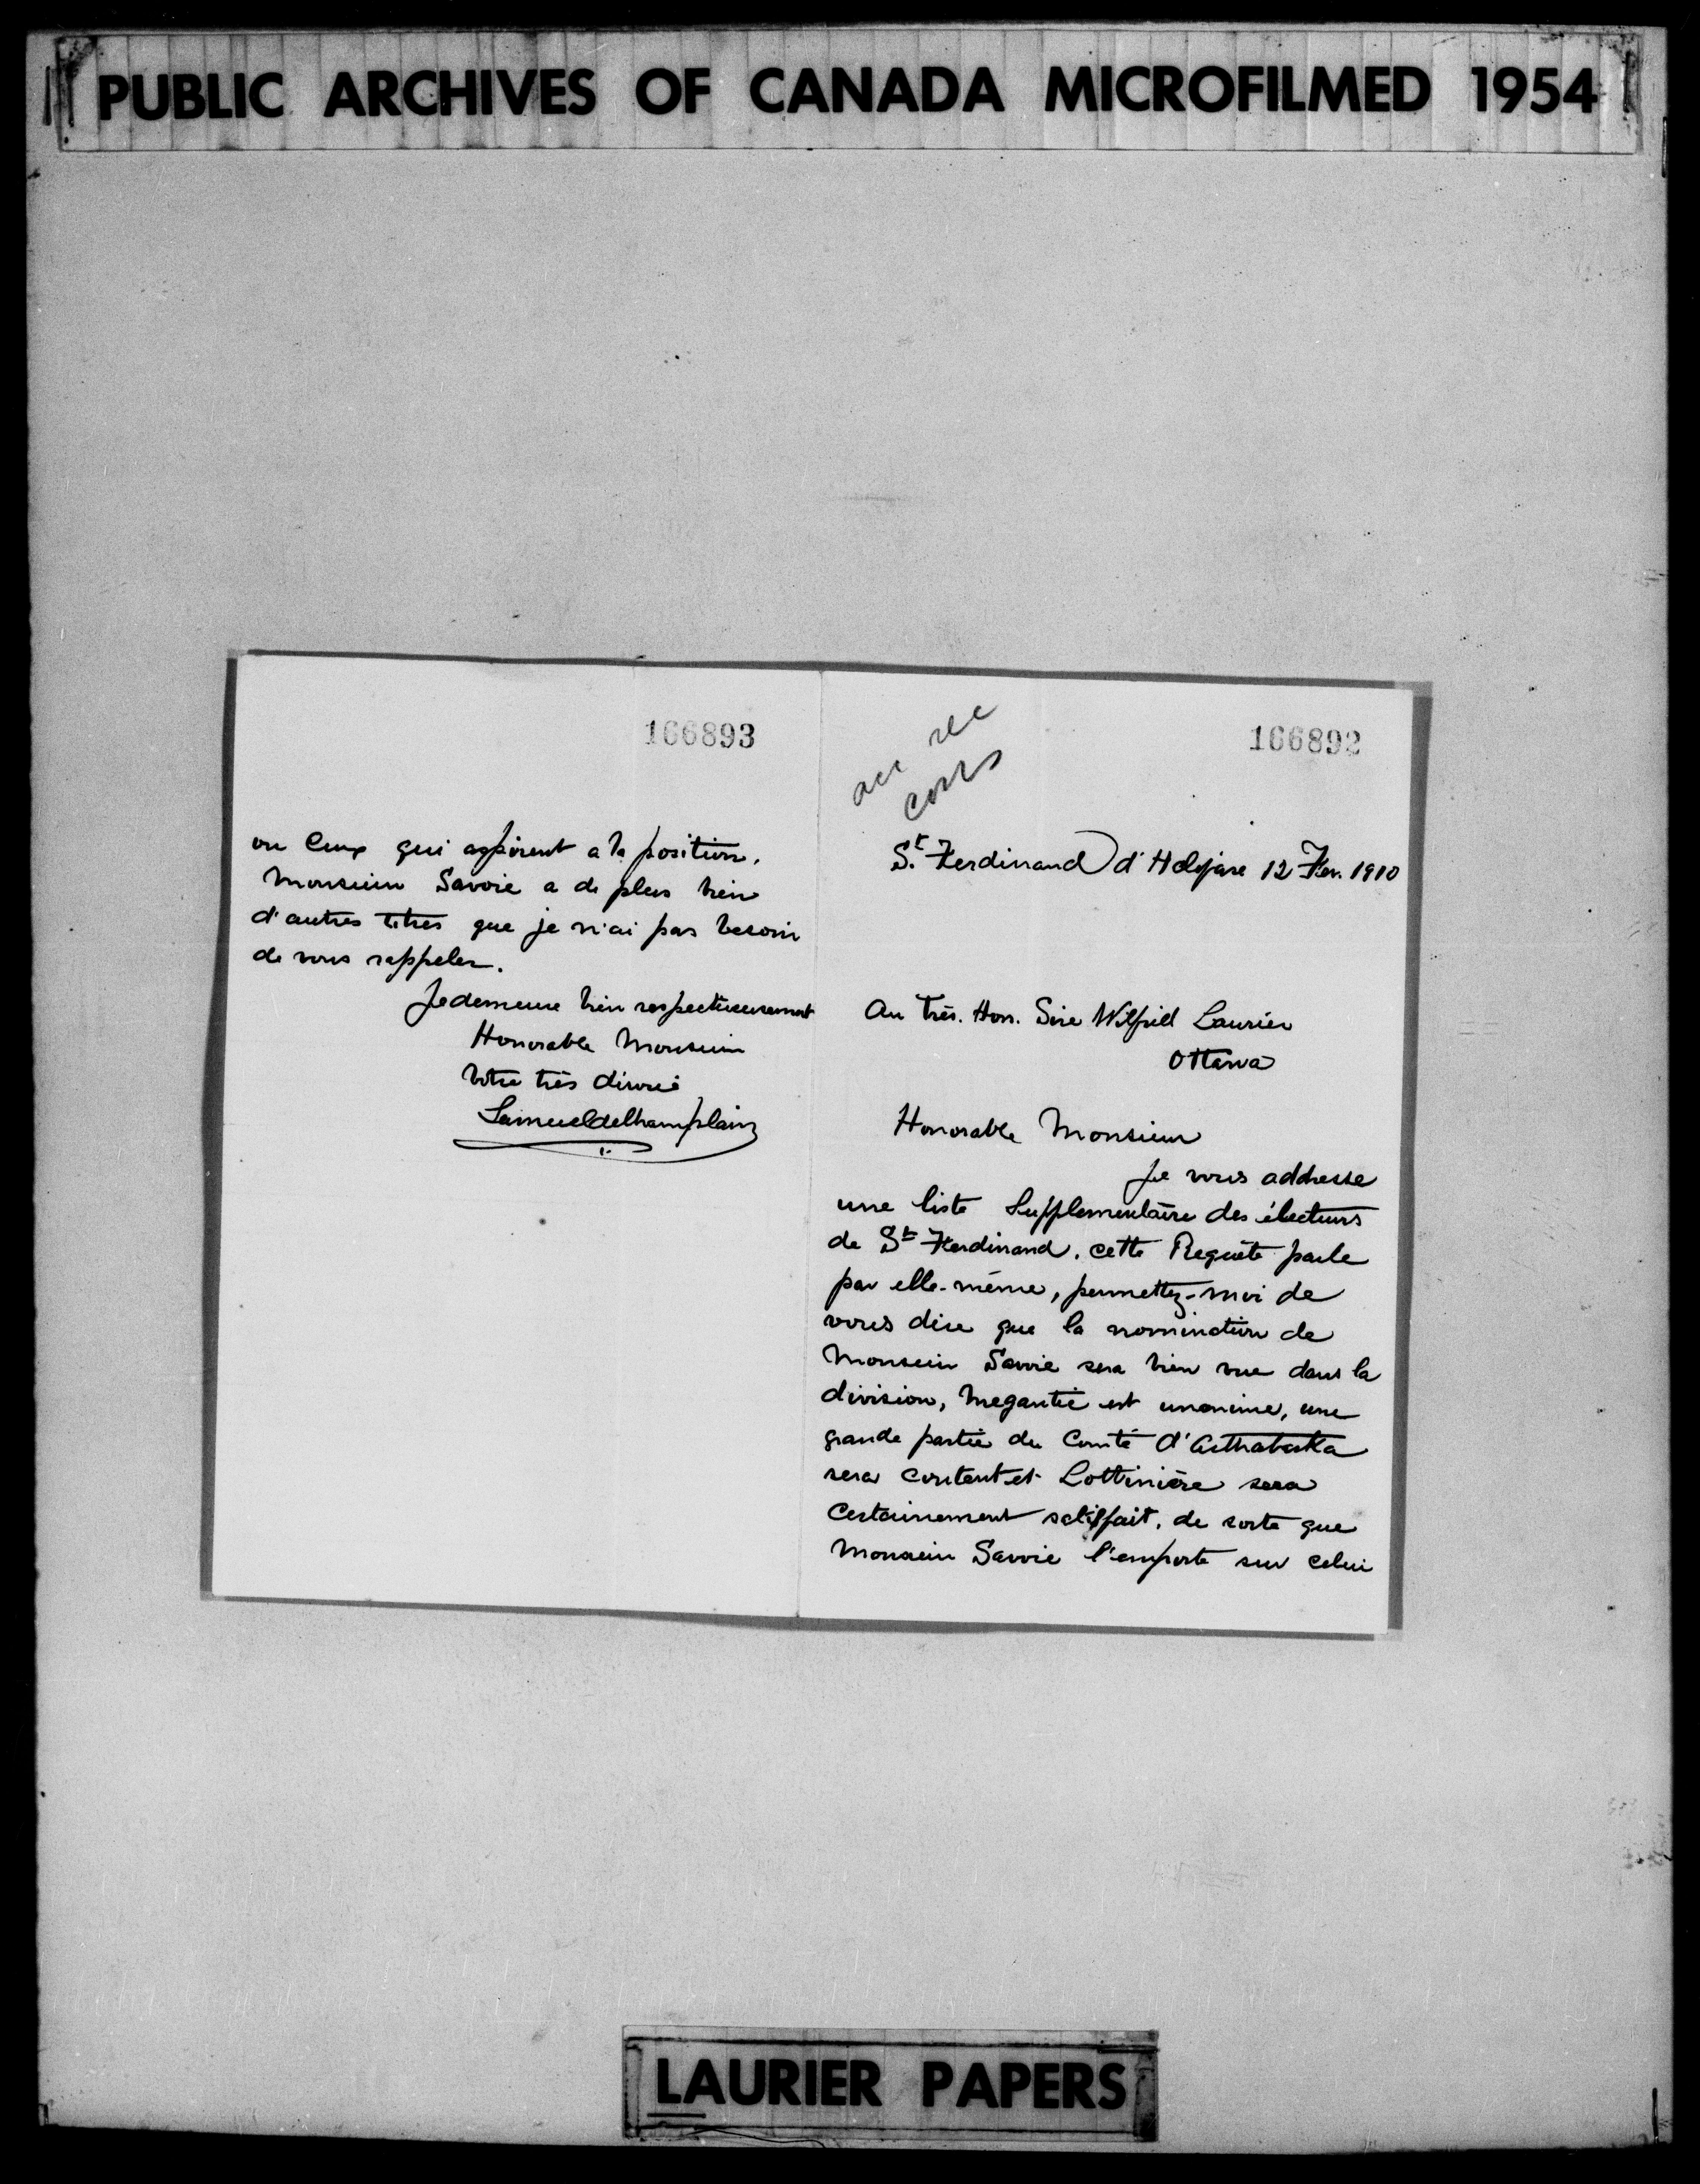 PUBLIC ARCHIVES OF CANADA MICROFILMED 1954
166892
St. Ferdinand d'Halifax 12 Fev. 1910
Au Très. Hon. Sire Wilfrid Laurier
Ottawa
Honorable Monsieur
Je vous addresse
une liste Supplementaire des électeurs
de St Ferdinand. cette Requête parle
par elle-même, permettez-moi de
vous dire que la nomination de
Monsieur Savoie sera bien vue dans la
division, Megantic est unanime, une
grande partie du Comté d'Arthabaska
sera content et Lotbinière sera
certainement satisfait, de sorte que
Monsieur Savoie l'emporte sur celui
166893
ou Ceux qui aspirent a la position.
Monsieur Savoie a de plus bien
d'autres titres que je n'ai pas besoin
de vous rappeler.
Je demeure bien respectueusement
Honorable Monsieur
Votre très dévoué
Samuel deChamplain
LAURIER PAPERS